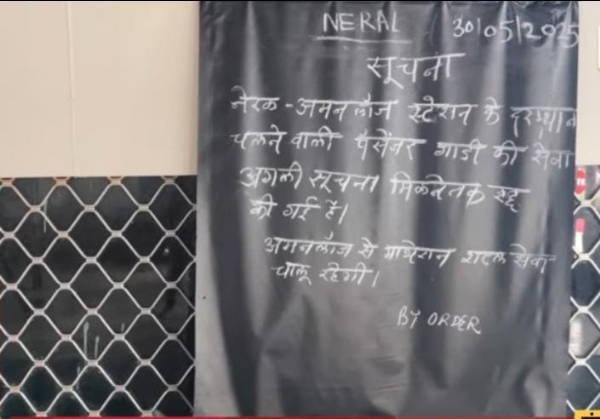 NERAL 30/05/2025
सूचना
नेरळ - अमनलॉज स्टेशन के दरम्यान
चलने वाली पैसेंजर गाडी की सेवा
अगली सूचना मिलनेतक रद्द
की गई है।
अमनलॉज से माथेरान शटल सेवा
चालू रहेगी।
BY ORDER